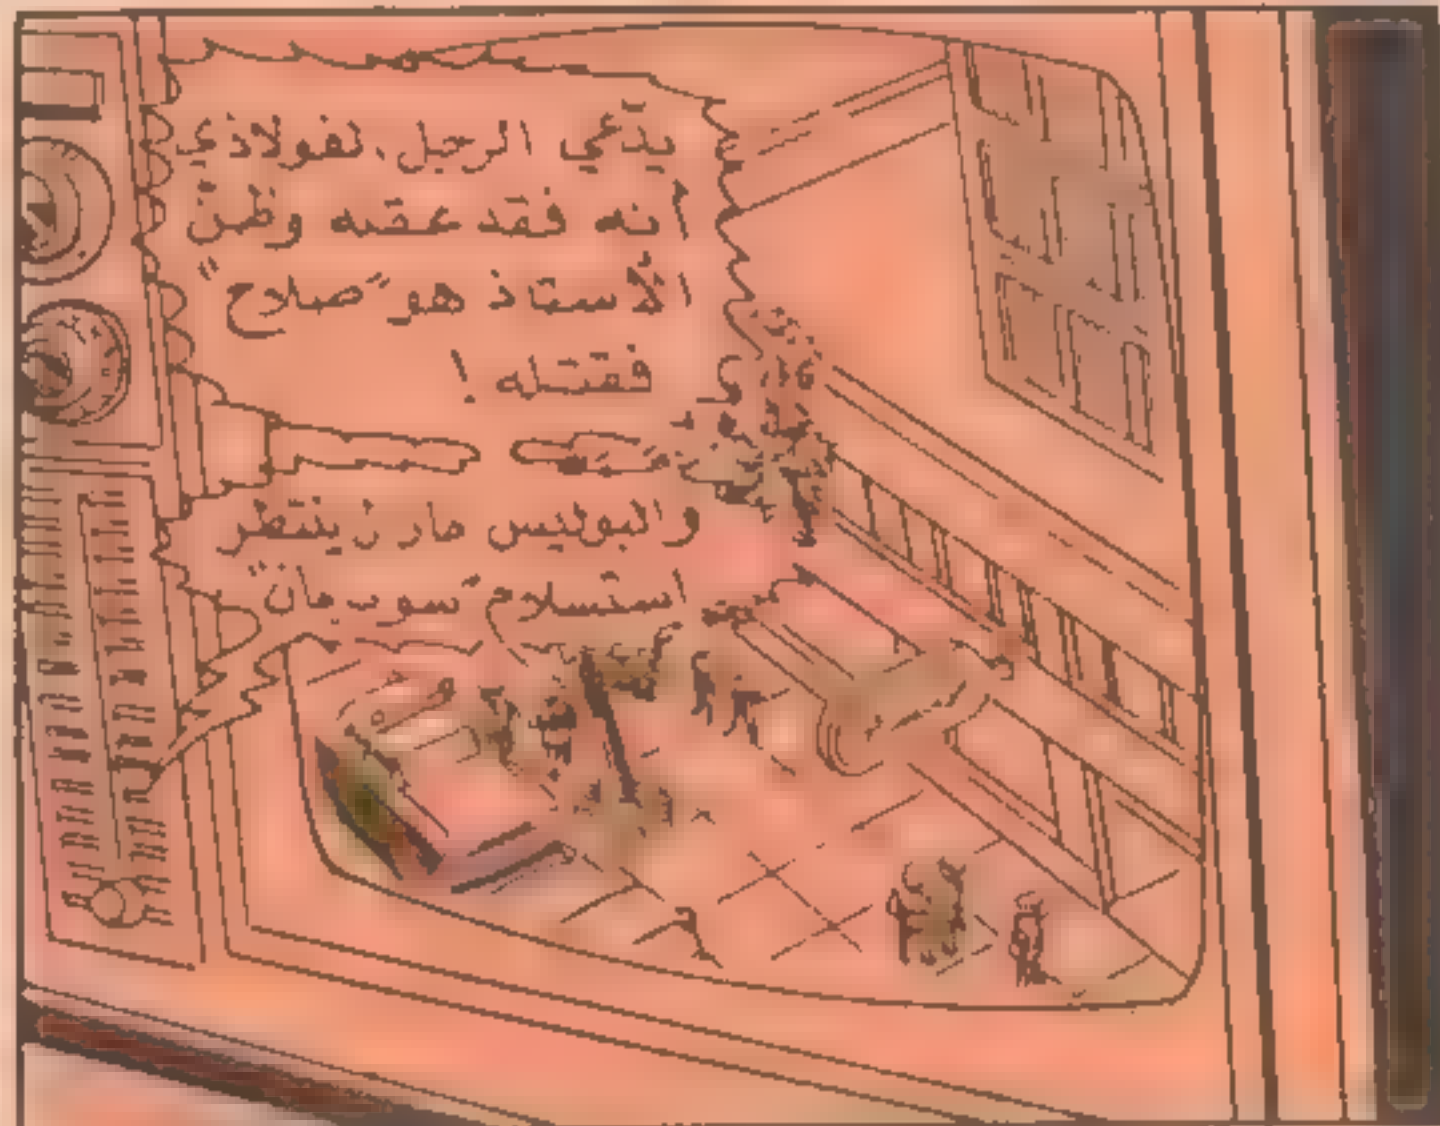 يدّعي الرجل الفولاذي
أنه فقد عقله وظنّ
الأستاذ هو "صلاح"
فقتله !
والبوليس ما زال ينتظر
استسلام "سوبرمان"